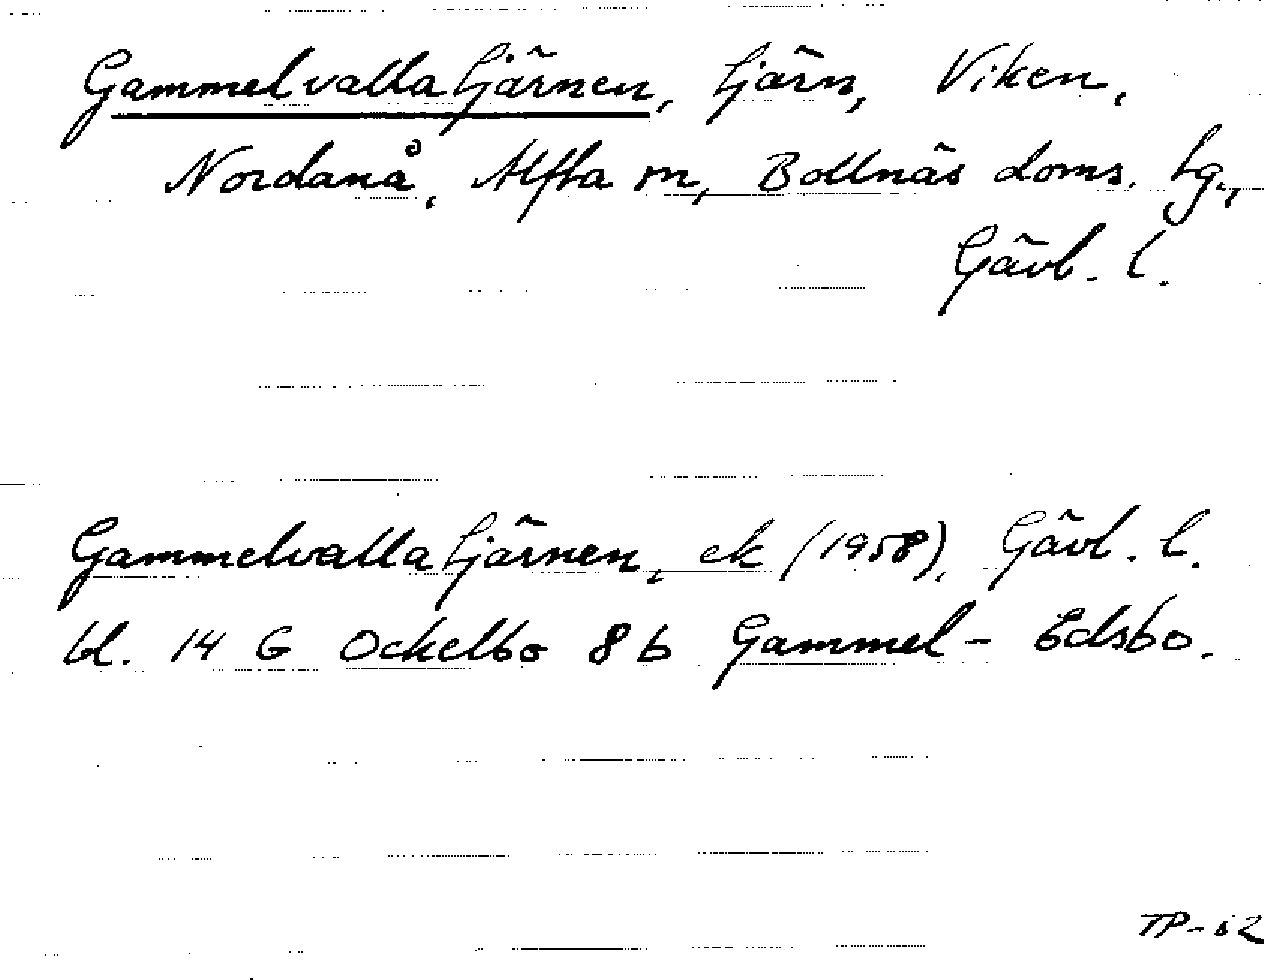 Gammelvallatjärnen, tjärn, Viken,
Nordanå, Alfta sn, Bollnäs doms. tg.,
Gävl. l.
Gammelvallatjärnen, ek (1958), Gävl. l.
bl. 14 G Ockelbo 8 b Gammel-Edsbo.
TP-62